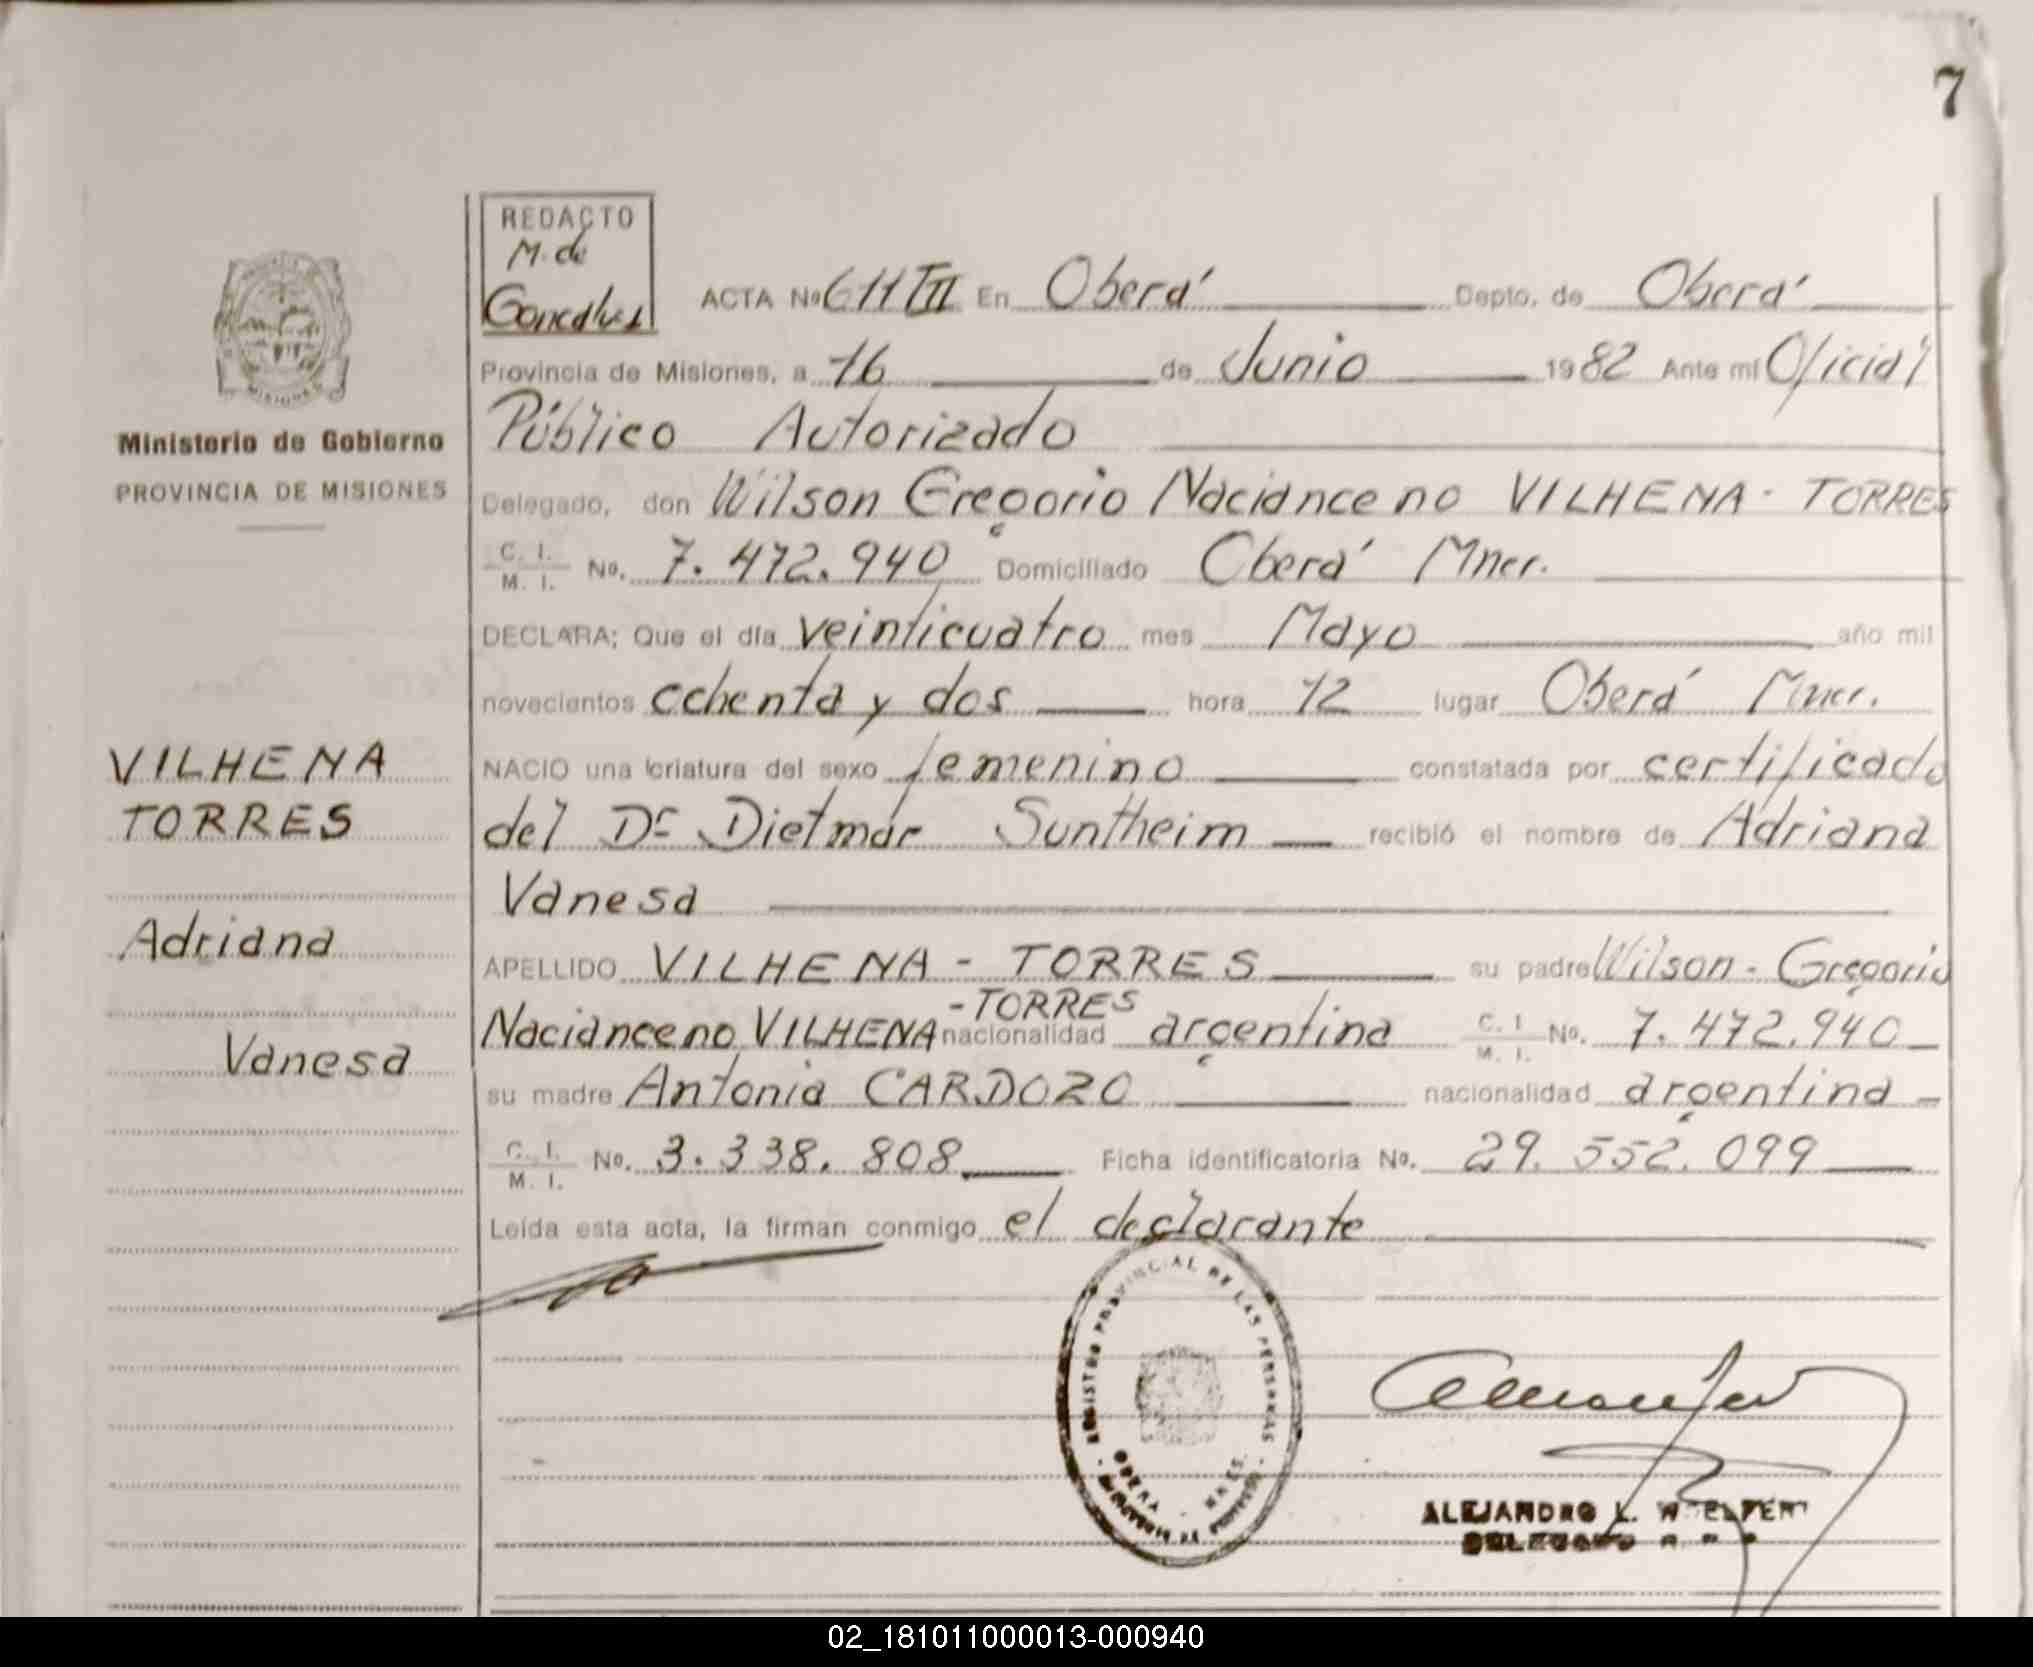 7
REDACTO
M. de
Goncalves
ACTA Nº 611 TII En Oberá Depto. de Oberá
Provincia de Misiones, a 16 de Junio 1982 Ante mi Oficial
Público Autorizado
Ministerio de Gobierno
PROVINCIA DE MISIONES
Delegado, don Wilson Gregorio Nacianceno VILHENA - TORRES
C. I.
M. I. No. 7.472.940 Domiciliado Oberá Mnes.
DECLARA; Que el día veinticuatro mes Mayo año mil
novecientos ochenta y dos hora 12 lugar Oberá Mnes.
NACIO una criatura del sexo femenino constatada por certificado
del Dr Dietmar Suntheim recibió el nombre de Adriana
Vanesa
VILHENA
TORRES
Adriana
Vanesa
APELLIDO VILHENA - TORRES su padre Wilson - Gregorio
Nacianceno VILHENA - TORRES nacionalidad argentina C. I. M. I. No. 7.472.940
su madre Antonia CARDOZO nacionalidad argentina
C. I.
M. I. No. 3.338.808 Ficha identificatoria No. 29.552.099
Leída esta acta, la firman conmigo el declarante
REGISTRO PROVINCIAL DE LAS PERSONAS
OBERA MNES.
ALEJANDRO L.
DELEGADO
02_181011000013-000940